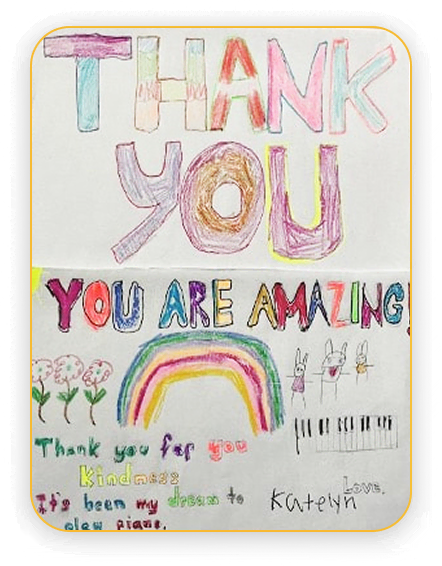 THANK
YOU
YOU ARE AMAZING!
Thank you for you
Kindness
It's been my dream to
play piano.
Love,
Katelyn